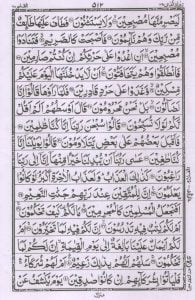 ٥١٣
لَيَصْرِمُنَّهَا مُصْبِحِيْنَ ۙ وَلَا يَسْتَثْنُوْنَ ۝ فَطَافَ عَلَيْهَا طَآئِفٌ
مِّنْ رَّبِّكَ وَهُمْ نَآئِمُوْنَ ۝ فَاَصْبَحَتْ كَالصَّرِيْمِ ۙ فَتَنَادَوْا
مُصْبِحِيْنَ ۙ اَنِ اغْدُوْا عَلٰى حَرْثِكُمْ اِنْ كُنْتُمْ صٰرِمِيْنَ ۝
فَانْطَلَقُوْا وَهُمْ يَتَخَافَتُوْنَ ۙ اَنْ لَّا يَدْخُلَنَّهَا الْيَوْمَ عَلَيْكُمْ
مِّسْكِيْنٌ ۙ وَّغَدَوْا عَلٰى حَرْدٍ قٰدِرِيْنَ ۝ فَلَمَّا رَاَوْهَا قَالُوْٓا اِنَّا
لَضَآلُّوْنَ ۙ بَلْ نَحْنُ مَحْرُوْمُوْنَ ۝ قَالَ اَوْسَطُهُمْ اَلَمْ اَقُلْ
لَّكُمْ لَوْلَا تُسَبِّحُوْنَ ۝ قَالُوْا سُبْحٰنَ رَبِّنَآ اِنَّا كُنَّا ظٰلِمِيْنَ ۝
فَاَقْبَلَ بَعْضُهُمْ عَلٰى بَعْضٍ يَّتَلَاوَمُوْنَ ۝ قَالُوْا يٰوَيْلَنَآ اِنَّا كُنَّا
طٰغِيْنَ ۝ عَسٰى رَبُّنَآ اَنْ يُّبْدِلَنَا خَيْرًا مِّنْهَآ اِنَّآ اِلٰى رَبِّنَا
رٰغِبُوْنَ ۝ كَذٰلِكَ الْعَذَابُ وَلَعَذَابُ الْاٰخِرَةِ اَكْبَرُ لَوْ كَانُوْا
يَعْلَمُوْنَ ۝ اِنَّ لِلْمُتَّقِيْنَ عِنْدَ رَبِّهِمْ جَنّٰتِ النَّعِيْمِ ۝
اَفَنَجْعَلُ الْمُسْلِمِيْنَ كَالْمُجْرِمِيْنَ ۝ مَا لَكُمْ كَيْفَ تَحْكُمُوْنَ ۝
اَمْ لَكُمْ كِتٰبٌ فِيْهِ تَدْرُسُوْنَ ۙ اِنَّ لَكُمْ فِيْهِ لَمَا تَخَيَّرُوْنَ ۝ اَمْ
لَكُمْ اَيْمَانٌ عَلَيْنَا بَالِغَةٌ اِلٰى يَوْمِ الْقِيٰمَةِ اِنَّ لَكُمْ لَمَا
تَحْكُمُوْنَ ۝ سَلْهُمْ اَيُّهُمْ بِذٰلِكَ زَعِيْمٌ ۝ اَمْ لَهُمْ شُرَكَآءُ
فَلْيَاْتُوْا بِشُرَكَآئِهِمْ اِنْ كَانُوْا صٰدِقِيْنَ ۝ يَوْمَ يُكْشَفُ عَنْ